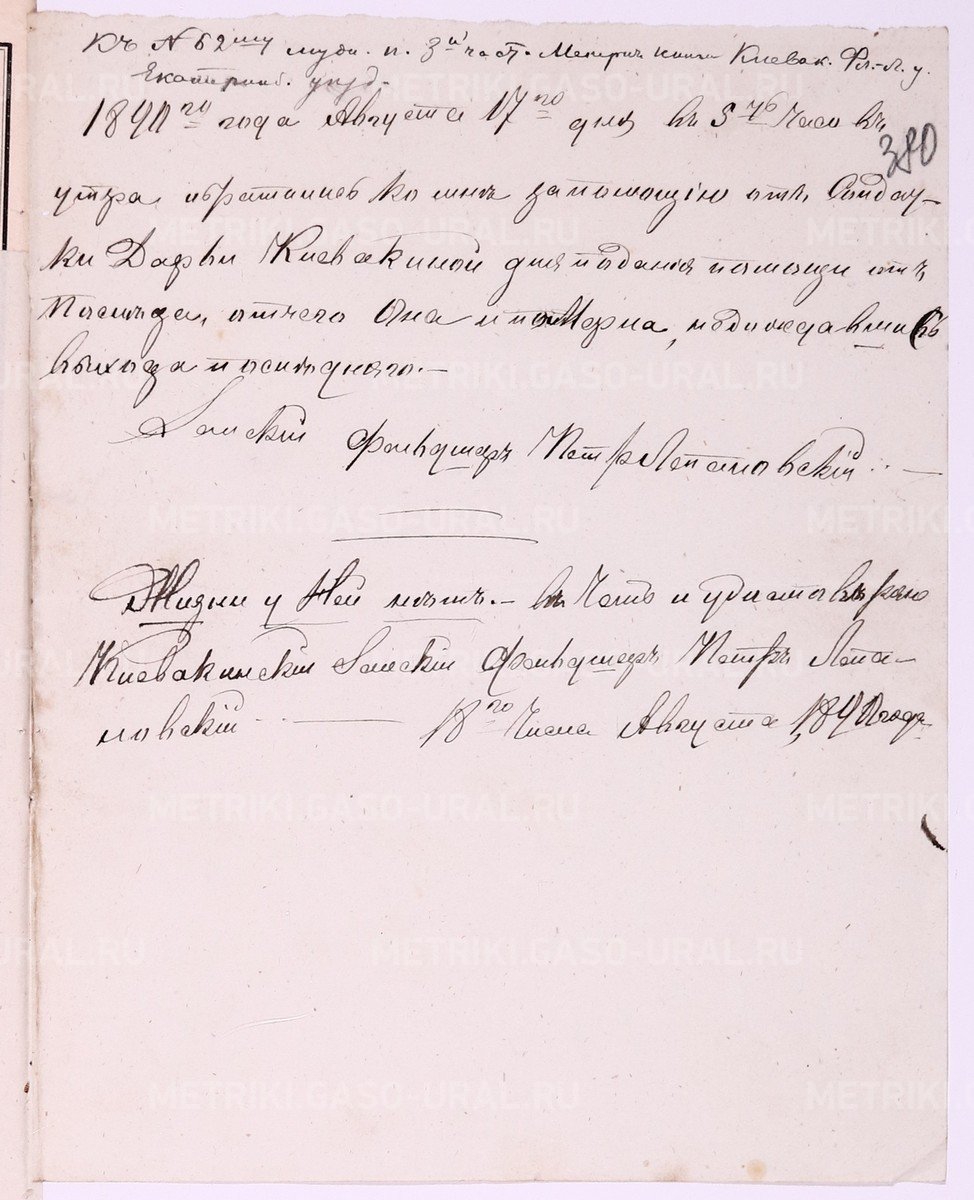 Къ № 62му муж. п. 3й част. Метрич книги Клевак. Фл.-Л. ц.
Екатеринб. уезд.
1890го года Августа 17го дня въ 5 Часо въ
380
утра, обратились ко мнѣ за помощію отъ Солдат-
ки Дарьи Клевакиной для поданія помощи отъ
Послѣда, отчего Она и поМерла, недождавшись
выхода послѣдняго.—
Земскій Фельдшеръ Петръ Лепановскій
Жизни у Ней нѣтъ.— въ Чемъ и удистовѣряю
Клевакинскій Земскій Фельдшеръ Петръ Лепа-
новскій — 18го Числа Августа 1890 года
METRIKI.GASO-URAL.RU